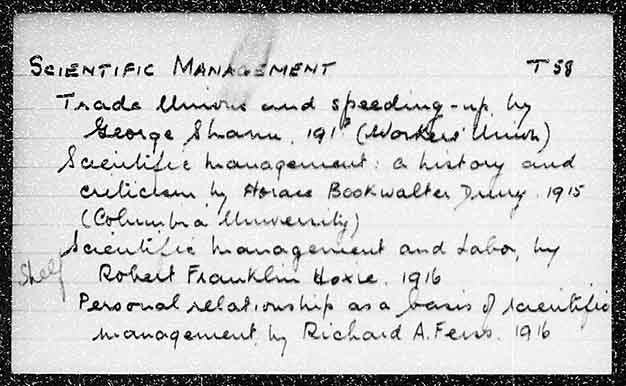 SCIENTIFIC MANAGEMENT T 58
Trade Unions and speeding-up by
George Shann. 191 (Workers' Union)
Scientific management: a history and
criticism by Horace Bookwalter Drury. 1915
(Columbia University)
Scientific management and Labor, by
Shelf
Robert Franklin Hoxie. 1916
Personal relationship as a basis of scientific
management, by Richard A. Feiss. 1916